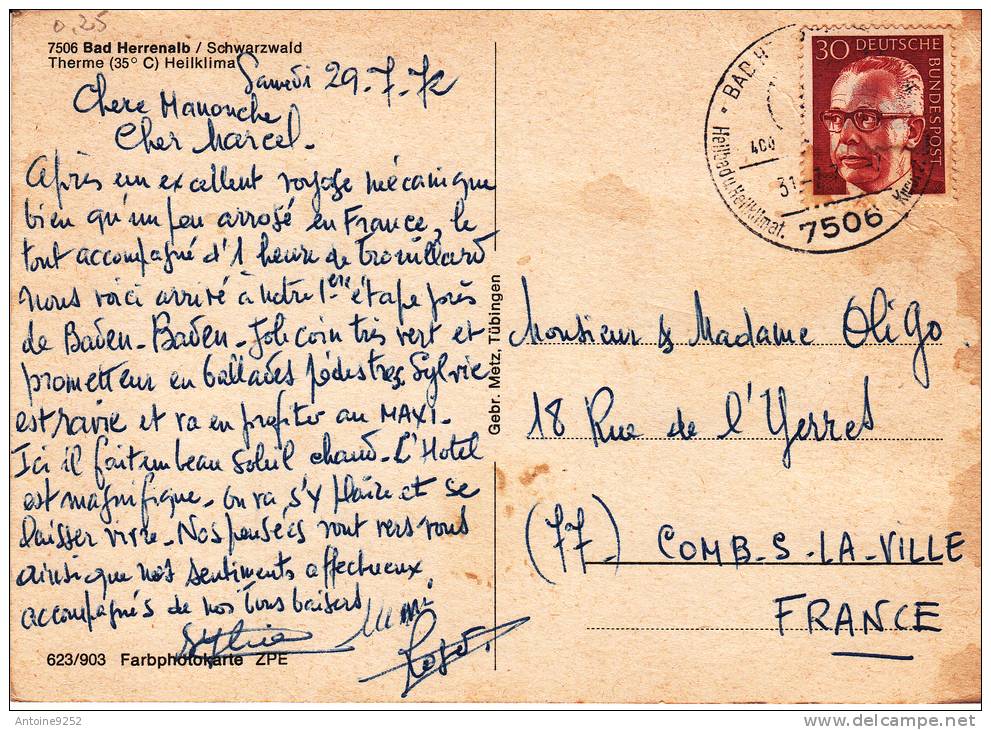 0.25
7506 Bad Herrenalb / Schwarzwald
Therme (35° C) Heilklima
Samedi 29.7.72
Chere Manouche
Cher Marcel.
Après un excellent voyage mécanique
bien qu'un peu arrosé en France, le
tout accompagné d'1 heure de brouillard
nous voici arrivé à notre 1ere étape près
de Baden-Baden. Joli coin très vert et
prometteur en ballades pédestres, Sylvie
est ravie et va en profiter au MAXI.
Ici il fait un beau soleil chaud. L'Hotel
est magnifique. On va s'y plaire et se
laisser vivre. Nos pensées vont vers vous
ainsi que nos sentiments affectueux
accompagnés de nos bons baisers
Sylvie Mimi
Roger.
623/903 Farbphotokarte ZPE
Gebr. Metz, Tübingen
30 DEUTSCHE
BUNDESPOST
BAD H
Heilbad u. Heilklimat.
31
7506
Monsieur & Madame Oligo
18 Rue de l'Yerres
(77) COMB-S-LA-VILLE
FRANCE
Antoine9252
delcampe.net